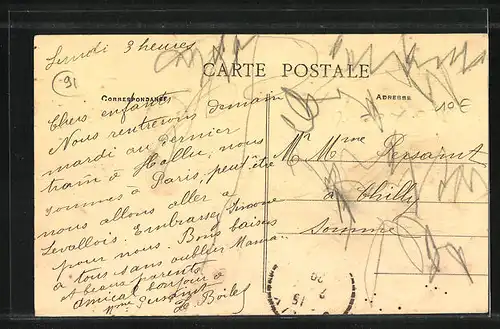 Lundi 3 heures
91
CARTE POSTALE
CORRESPONDANCE
ADRESSE
10€
Chers enfants
Nous rentrerons demain
mardi au dernier
train à Hallu, nous
sommes à Paris, peut être
nous allons aller à
Levallois. Embrassez Simone
pour nous. Bons baisers
à tous sans oublier Mama
et beaux parents
amical bonjour à
Mme
de Boiles
Mr Mme Persaint
à Chilly
Somme